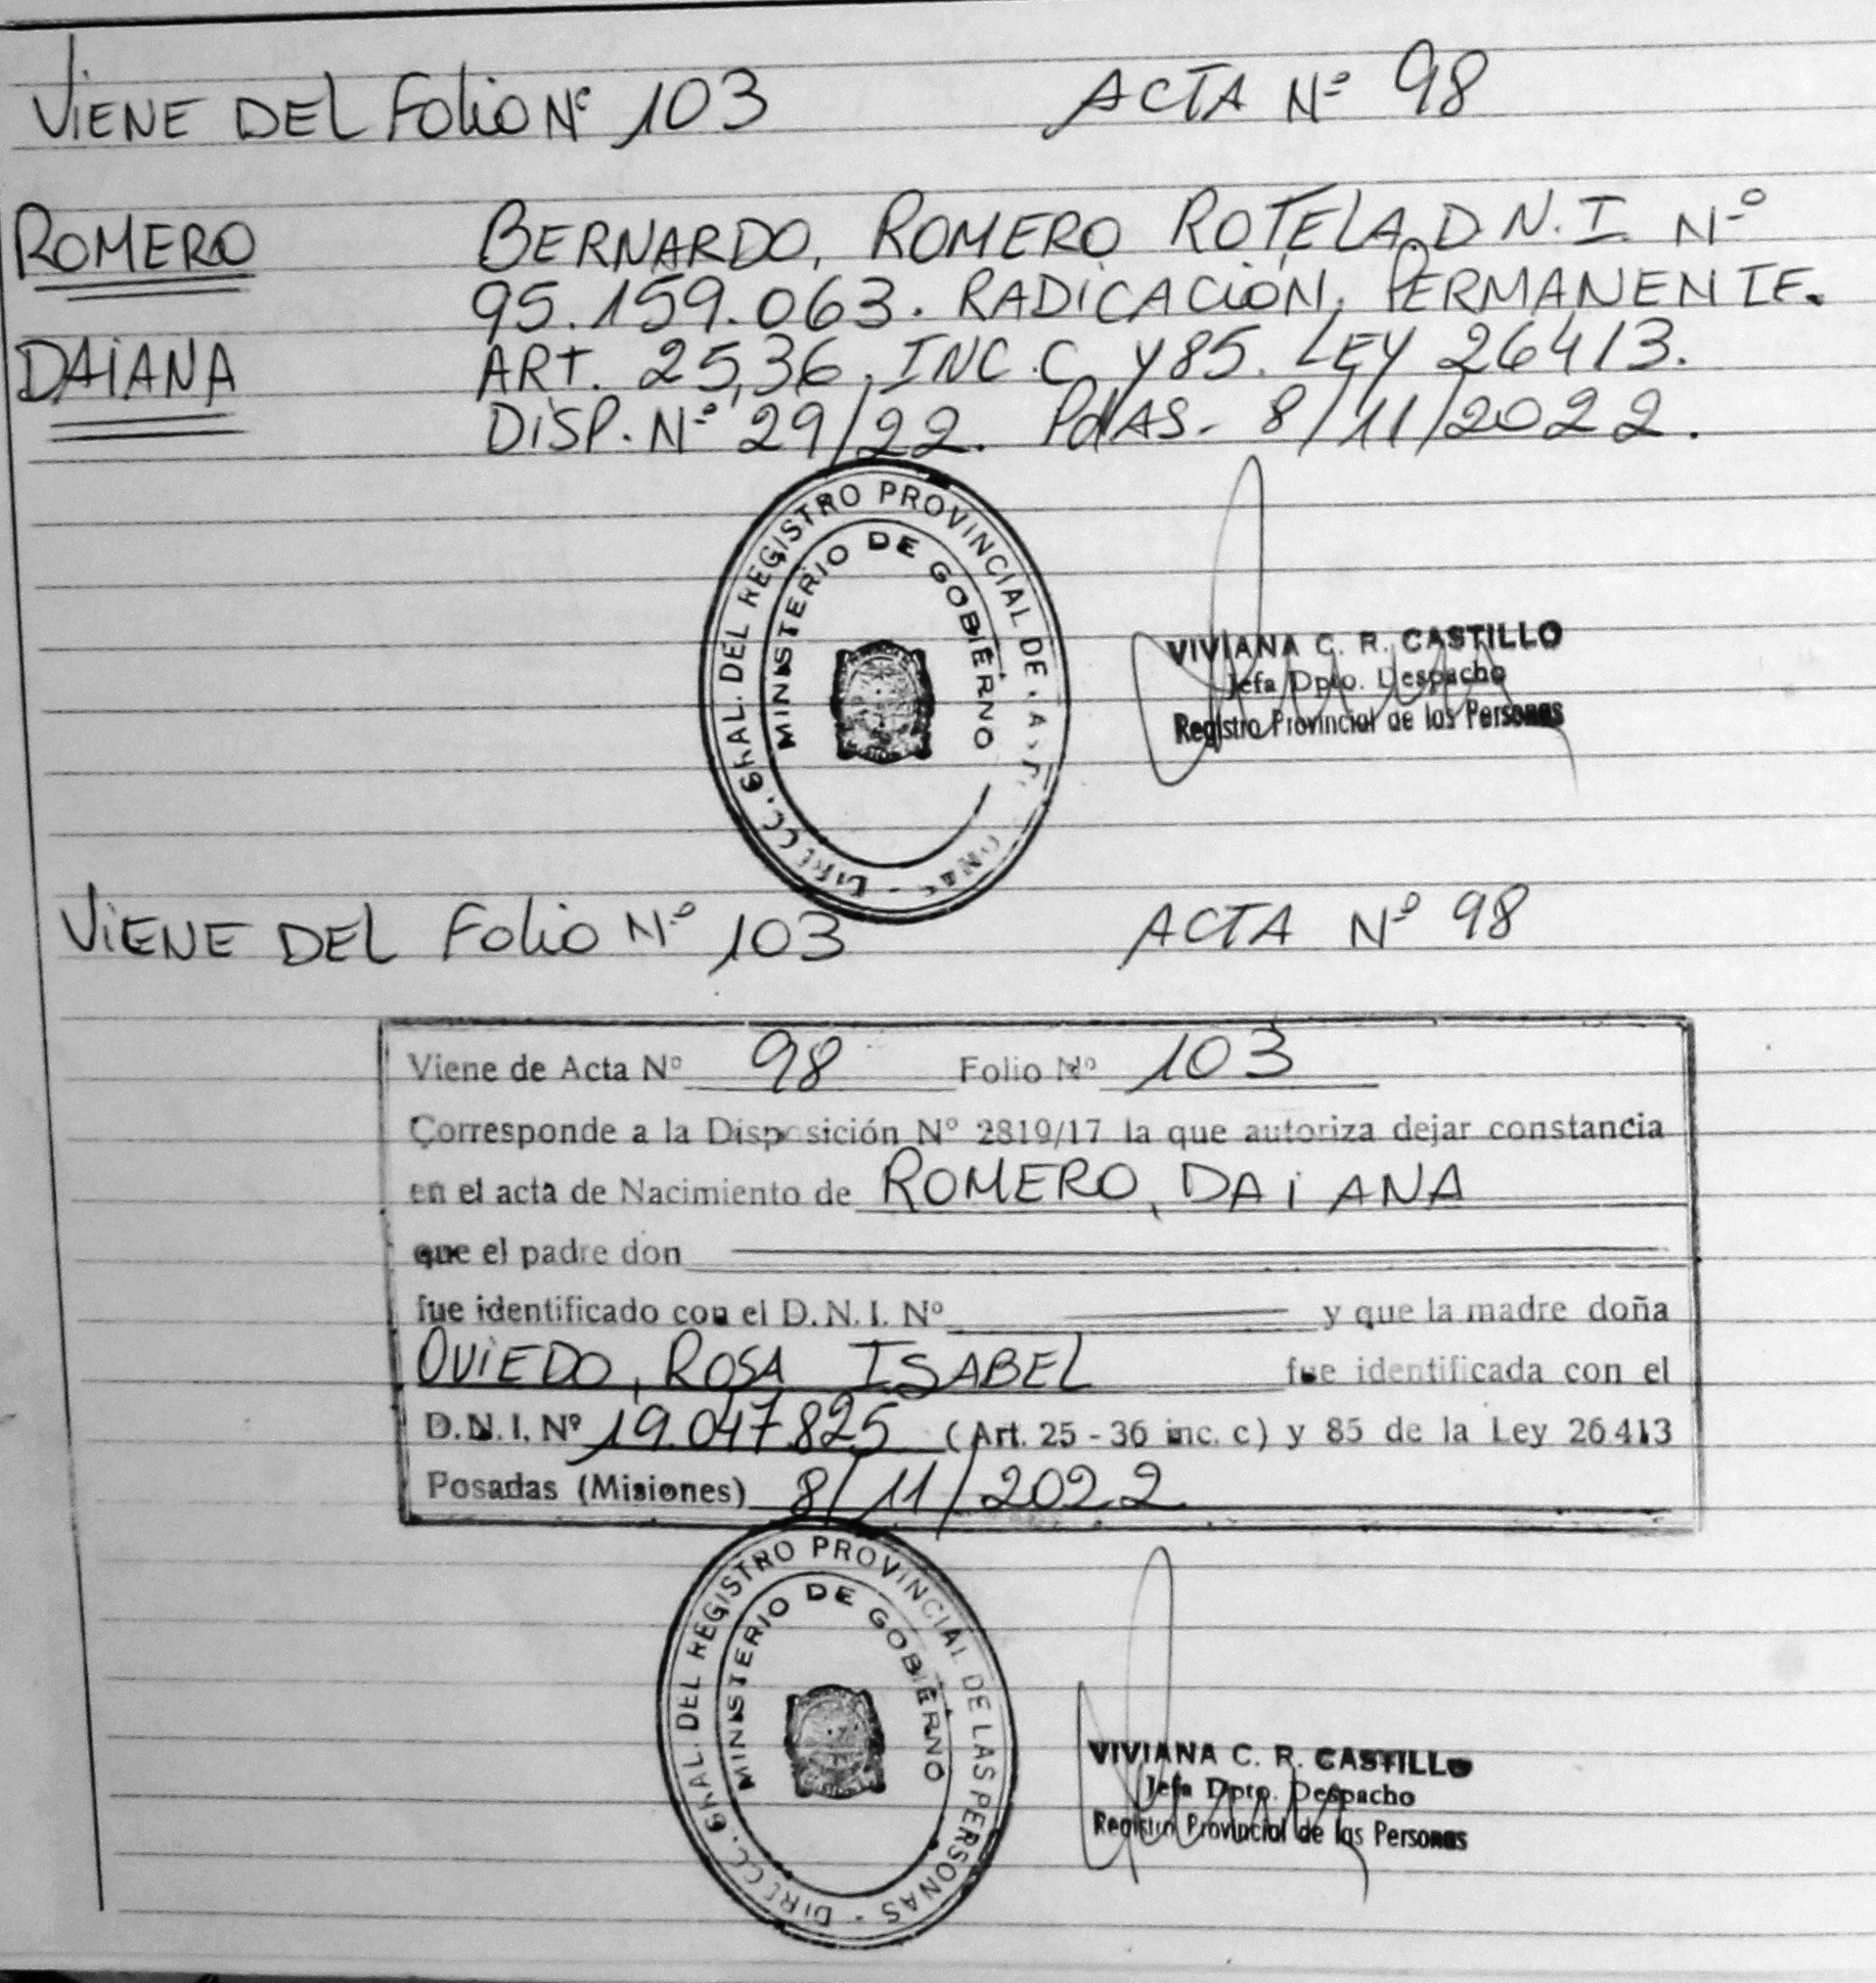 VIENE DEL FOLIO Nº 103 ACTA Nº 98
ROMERO BERNARDO, ROMERO ROTELA, D.N.I. Nº
95.159.063. RADICACIÓN, PERMANENTE.
DAIANA ART. 25,36, INC. C y 85. LEY 26413.
DISP. Nº 29/22. PdAS. 8/11/2022.
DIRECC. GRAL. DEL REGISTRO PROVINCIAL DE
MINISTERIO DE GOBIERNO
VIVIANA C. R. CASTILLO
Jefa Dpto. Despacho
Registro Provincial de las Personas
VIENE DEL FOLIO Nº 103 ACTA Nº 98
Viene de Acta Nº 98 Folio Nº 103
Corresponde a la Disposición Nº 2819/17 la que autoriza dejar constancia
en el acta de Nacimiento de ROMERO, DAIANA
que el padre don
fue identificado con el D.N.I. Nº y que la madre doña
OVIEDO, ROSA ISABEL fue identificada con el
D.N.I. Nº 19.047.825 (Art. 25 - 36 inc. c) y 85 de la Ley 26413
Posadas (Misiones) 8/11/2022
DIRECC. GRAL. DEL REGISTRO PROVINCIAL DE LAS PERSONAS -
MINISTERIO DE GOBIERNO
VIVIANA C. R. CASTILLO
Jefa Dpto. Despacho
Registro Provincial de las Personas